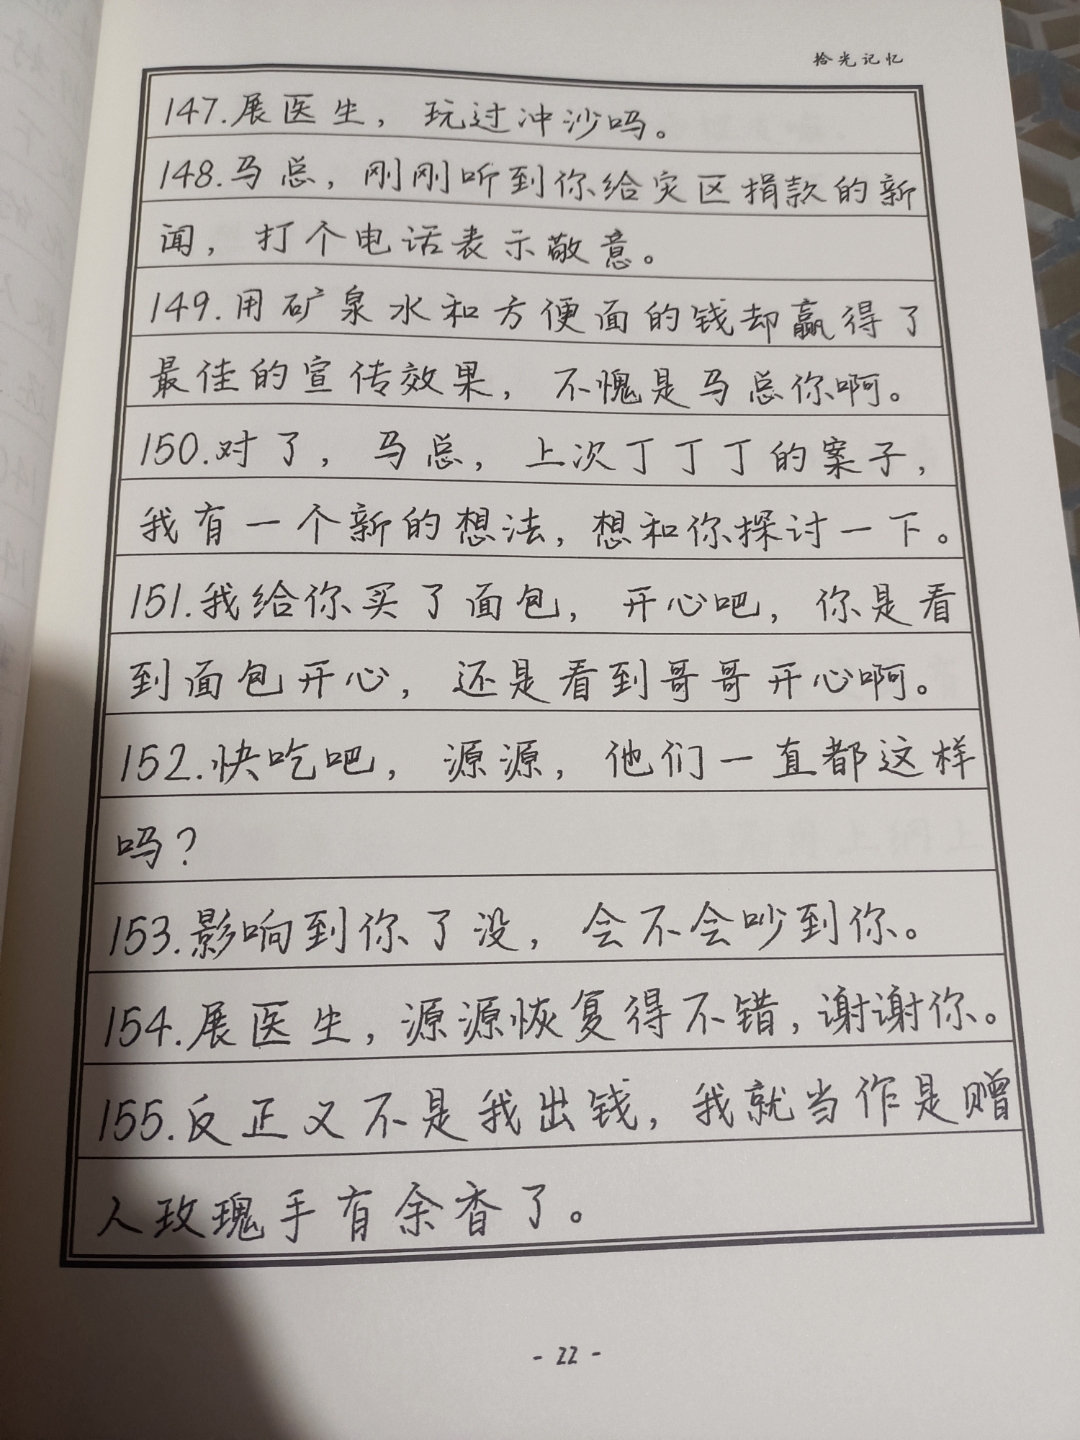 拾光记忆
147.展医生，玩过冲沙吗。
148.马总，刚刚听到你给灾区捐款的新
闻，打个电话表示敬意。
149.用矿泉水和方便面的钱却赢得了
最佳的宣传效果，不愧是马总你啊。
150.对了，马总，上次丁丁丁的案子，
我有一个新的想法，想和你探讨一下。
151.我给你买了面包，开心吧，你是看
到面包开心，还是看到哥哥开心啊。
152.快吃吧，源源，他们一直都这样
吗？
153.影响到你了没，会不会吵到你。
154.展医生，源源恢复得不错，谢谢你。
155.反正又不是我出钱，我就当作是赠
人玫瑰手有余香了。
- 22 -